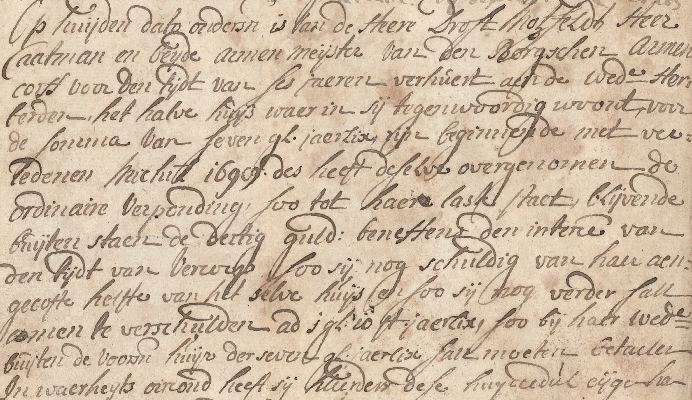 Op huijden dato ondersn is van de Here Drost Hotfeldt Heer
Laatman en beyde armen meijster van den Borgschen Armen
corff voor den tijdt van ses jaeren verhuert aen de wede Her
berden, het halve huijs waer in sij tegenwoordig woont, voor
de somma van seven gl: jaerlix, sijn beginnende met ver=
ledenen Michili 1699. des heeft deselve overgenomen de
ordinaire verponding, soo tot haere last staet, blijvende
buijten staen de dertig guld: beneffens den interes van
den tijdt van soo sij nog schuldig van haer aen=
gecofte helfte van het selve huijs en soo sij nog verder sall
comen te verschulden ad 1 gl: 10 st jaerlix, soo bij haer wede=
buijten de voorsn huijr der seven gl: jaerlix sall moeten betaelen
In waerheyts oirond heeft sij Huerders dese huyrcedul eijgen ha